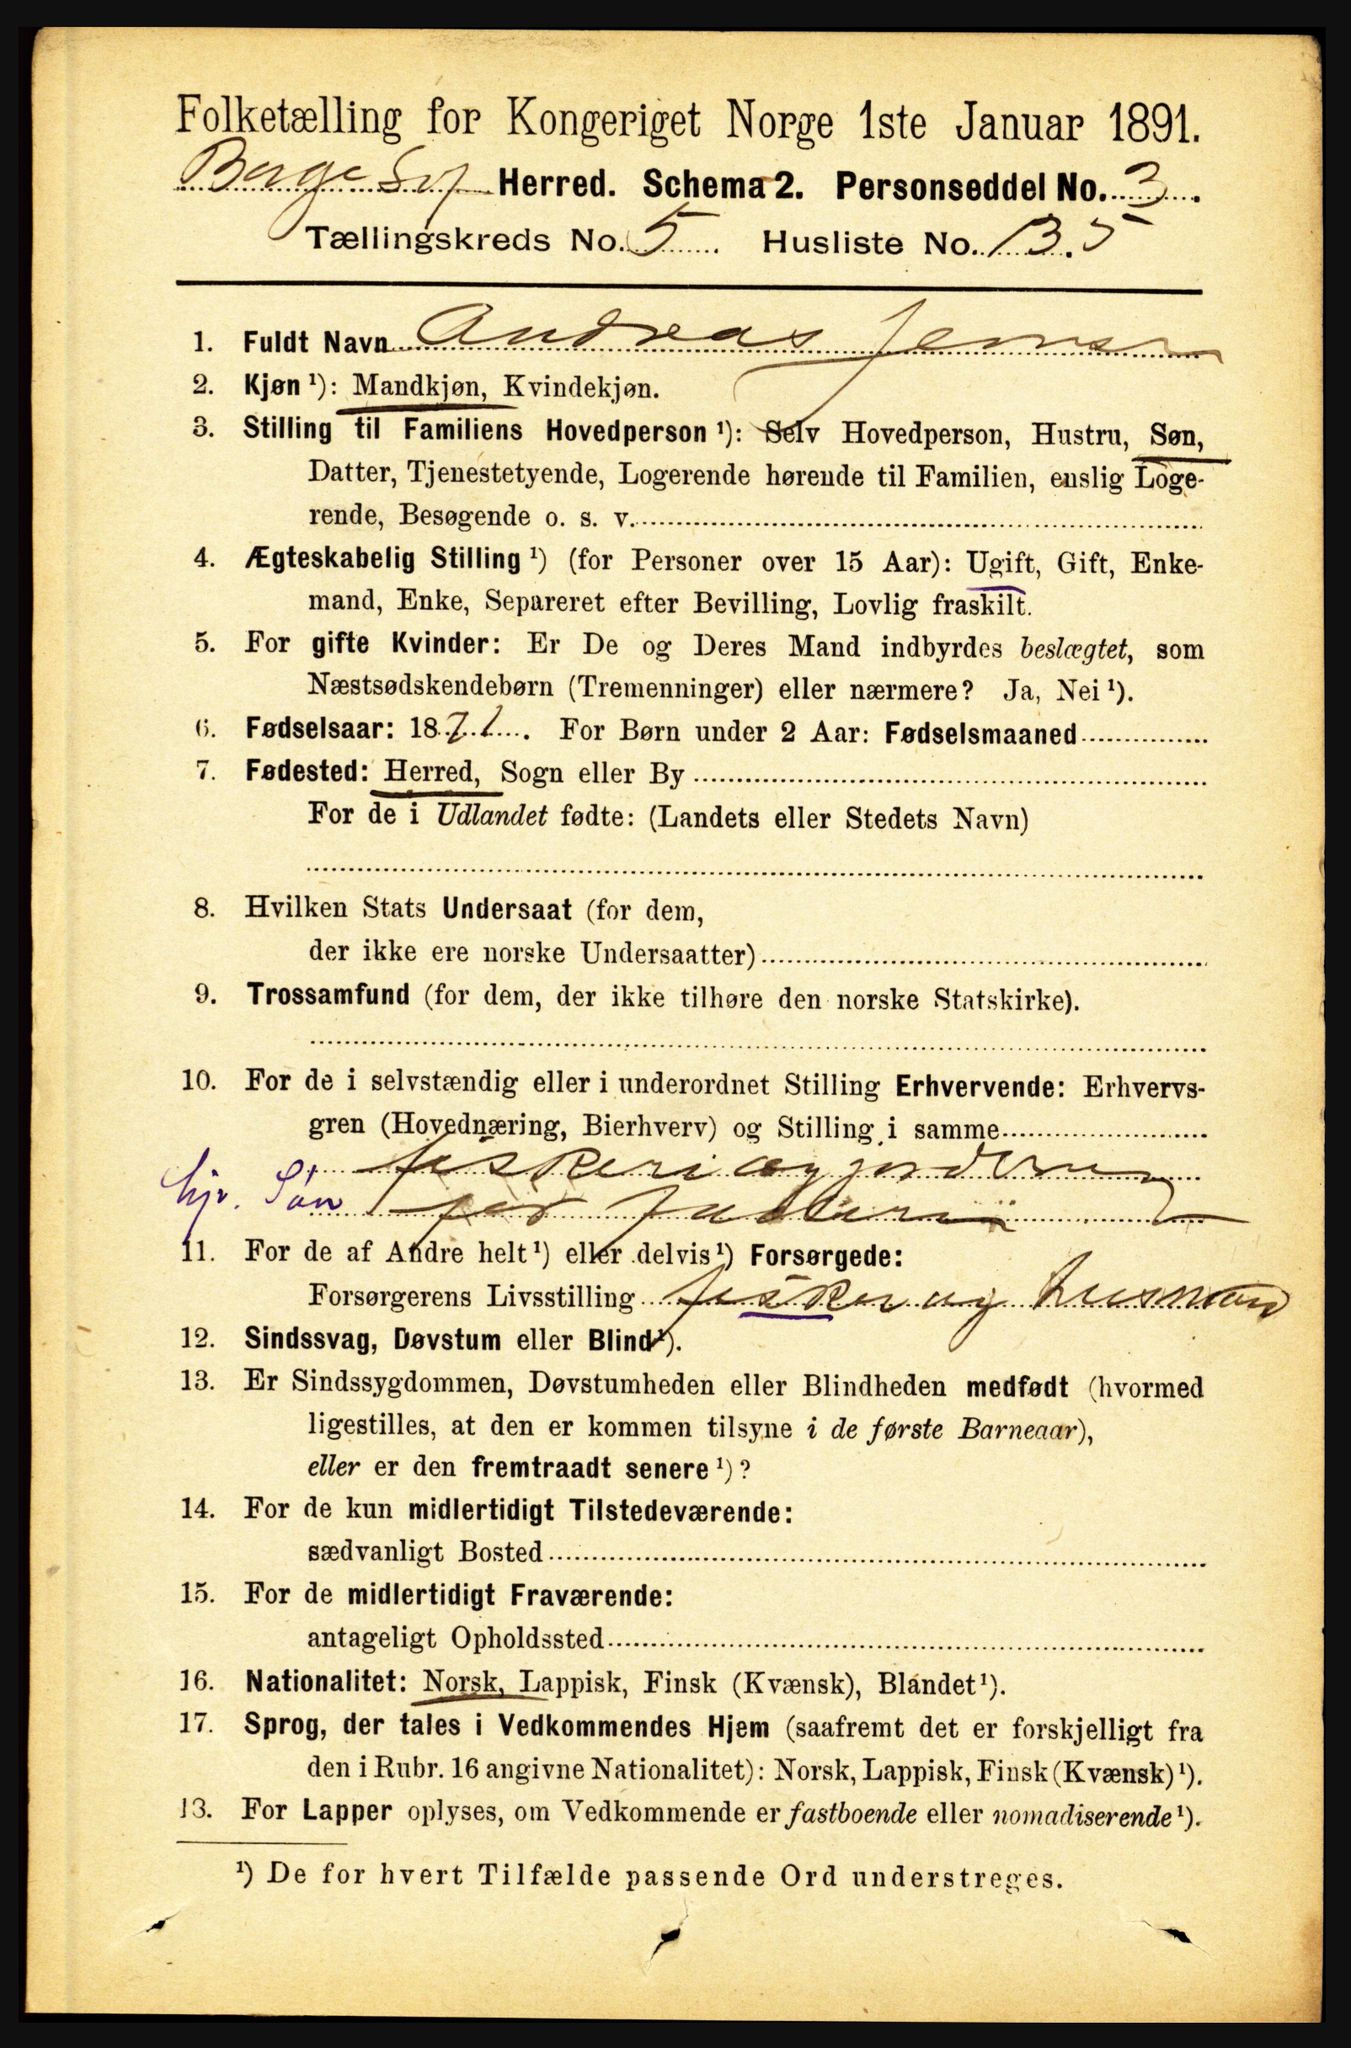 Folketælling for Kongeriget Norge 1ste Januar 1891.
Borge Herred. Schema 2. Personseddel No. 3.
Tællingskreds No. 5. Husliste No. 135
1. Fuldt Navn Andreas Jensen
2. Kjøn ¹): Mandkjøn, Kvindekjøn.
3. Stilling til Familiens Hovedperson ¹): Selv Hovedperson, Hustru, Søn,
Datter, Tjenestetyende, Logerende hørende til Familien, enslig Loge-
rende, Besøgende o. s. v.
4. Ægteskabelig Stilling ¹) (for Personer over 15 Aar): Ugift, Gift, Enke-
mand, Enke, Separeret efter Bevilling, Lovlig fraskilt.
5. For gifte Kvinder: Er De og Deres Mand indbyrdes beslægtet, som
Næstsødskendebørn (Tremenninger) eller nærmere? Ja, Nei ¹).
6. Fødselsaar: 1871. For Børn under 2 Aar: Fødselsmaaned
7. Fødested: Herred, Sogn eller By
For de i Udlandet fødte: (Landets eller Stedets Navn)
8. Hvilken Stats Undersaat (for dem,
der ikke ere norske Undersaatter)
9. Trossamfund (for dem, der ikke tilhøre den norske Statskirke).
10. For de i selvstændig eller i underordnet Stilling Erhvervende: Erhvervs-
gren (Hovednæring, Bierhverv) og Stilling i samme
fiskeri og jordbrug
hjv. Søn for faderen
11. For de af Andre helt ¹) eller delvis ¹) Forsørgede:
Forsørgerens Livsstilling fisker og husmand
12. Sindssvag, Døvstum eller Blind ¹).
13. Er Sindssygdommen, Døvstumheden eller Blindheden medfødt (hvormed
ligestilles, at den er kommen tilsyne i de første Barneaar),
eller er den fremtraadt senere ¹)?
14. For de kun midlertidigt Tilstedeværende:
sædvanligt Bosted
15. For de midlertidigt Fraværende:
antageligt Opholdssted
16. Nationalitet: Norsk, Lappisk, Finsk (Kvænsk), Blandet ¹).
17. Sprog, der tales i Vedkommendes Hjem (saafremt det er forskjelligt fra
den i Rubr. 16 angivne Nationalitet): Norsk, Lappisk, Finsk (Kvænsk) ¹).
13. For Lapper oplyses, om Vedkommende er fastboende eller nomadiserende ¹).
¹) De for hvert Tilfælde passende Ord understreges.